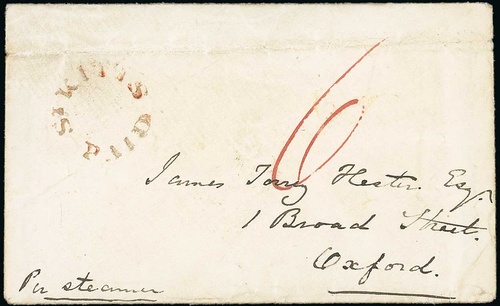 ST KITTS
PAID
6
James Torry Hester. Esqr
1 Broad Street.
Oxford.
Per steamer